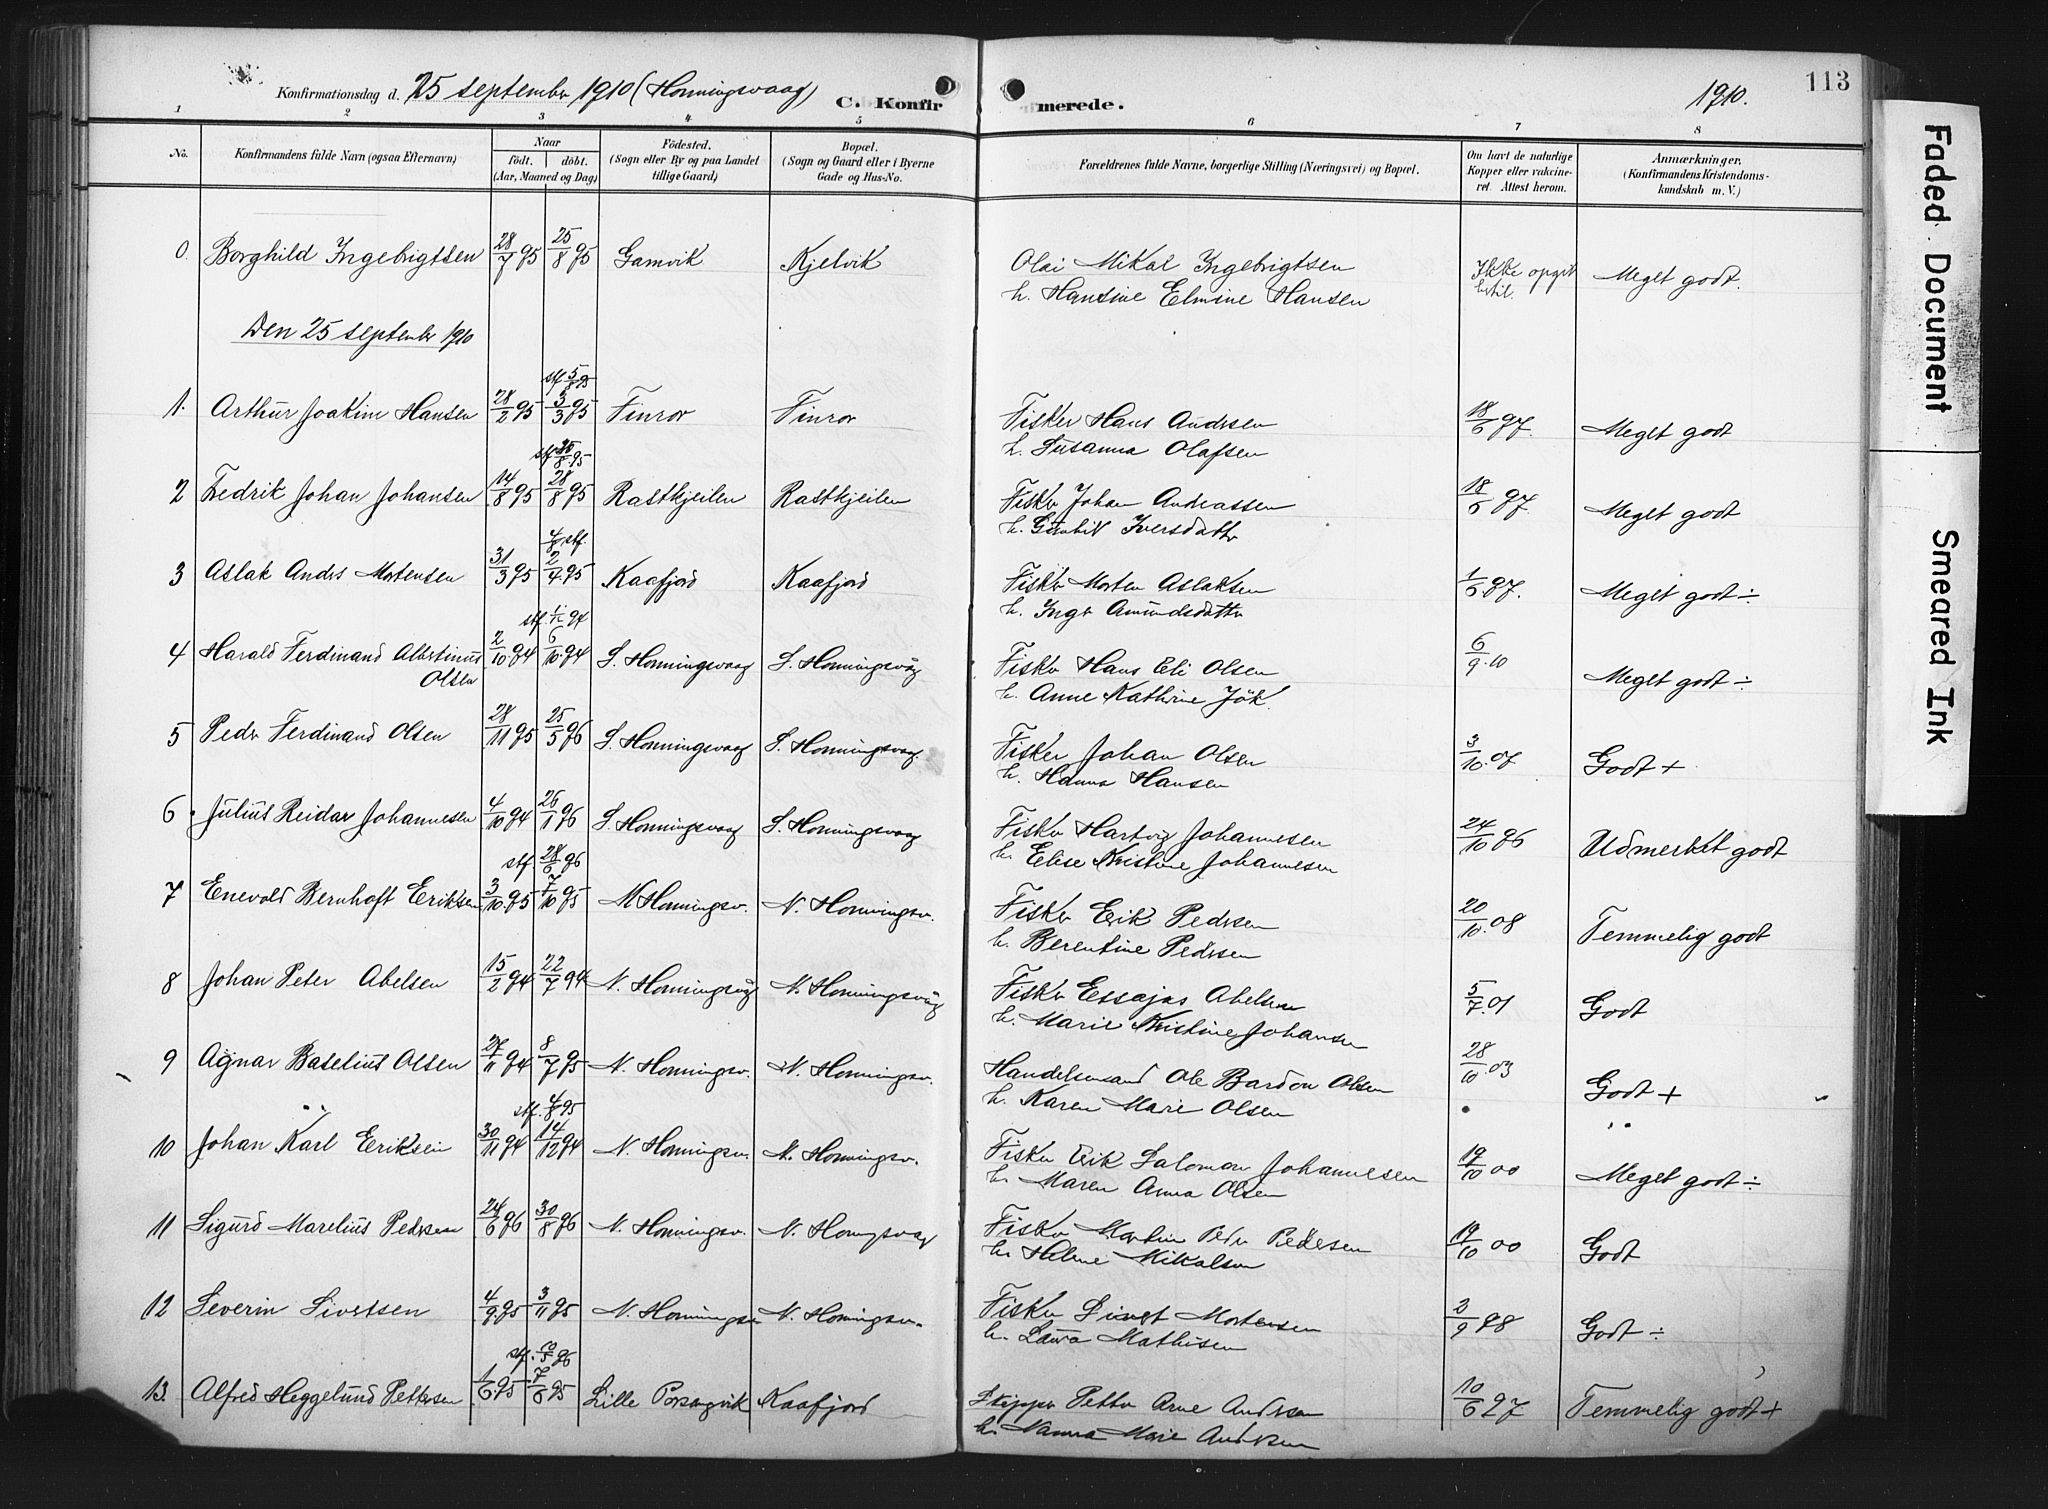 Konfirmationsdag d. 25 september 1910 (Honningsvaag)
C. Konfirmerede.
1910.
113
1 2 3 4 5 6 7 8
No.
Konfirmandens fulde Navn (ogsaa Efternavn)
Naar
födt. döbt.
(Aar, Maaned og Dag)
Födested.
(Sogn eller By og paa Landet
tillige Gaard)
Bopæl.
(Sogn og Gaard eller i Byerne
Gade og Hus-No.
Forældrenes fulde Navne, borgerlige Stilling (Næringsvei) og Bopæl.
Om havt de naturlige
Kopper eller vakcine-
ret. Attest herom.
Anmærkninger.
(Konfirmandens Kristendoms-
kundskab m. V.)
0. Borghild Ingebrigtsen 28/7 95 25/8 95 Gamvik Kjelvik Olai Mikal Ingebrigtsen Ikke opgit Meget godt.
h. Hansine Elmine Hansen hertil.
Den 25 september 1910
stf. 5/8 95
1. Arthur Joakim Hansen 28/2 95 3/3 95 Finror Finror Fisker Hans Andersen 18/6 97. Meget godt
h. Susanna Olafsen
stf 25/8 95
2 Fredrik Johan Johansen 14/8 95 28/8 95 Rastkjeilen Rastkjeilen Fisker Johan Andreassen 18/6 97. Meget godt
h. Gunhil Iversdatter
stf.
3 Aslak Anders Mortensen 31/3 95 2/4 95 Kaafjord Kaafjord Fisker Morten Aslaksen 1/6 97. Meget godt ÷
h. Inger Amundsdatter
stf.
4 Harald Ferdinand Albertinus 2/10 94 6/10 94 S. Honningsvaag S. Honningsvåg Fisker Hans Eli Olsen 6/9 10 Meget godt ÷
Olsen h. Anne Kathrine Jök.
5 Peder Ferdinand Olsen 28/11 95 25/5 96 S. Honningsvaag S. Honningsvaag. Fisker Johan Olsen 3/10 07 Godt +
h. Hanna Hansen
6 Julius Reidar Johannesen 4/10 94 26/1 96 S. Honningsvaag S. Honningsvaag Fisker Hartvig Johannesen 24/10 96 Udmerket godt
h. Elise Kristine Johannesen
stf 28/6 96
7 Enevold Bernhoft Eriksen 3/10 95 7/10 95 N. Honningsv. N. Honningsv. Fisker Erik Pedersen 20/10 08 Temmelig godt
h. Berentine Pedersen
8 Johan Peter Abelsen 15/2 94 22/7 94 N. Honningsvåg N. Honningsvåg Fisker Essajas Abelsen 5/7 01 Godt
h. Marie Kristine Johansen
9 Agnar Baselius Olsen 27/11 94 8/7 95 N. Honningsv. N. Honningsv. Handelsmand Ole Bardon Olsen 28/10 03 Godt +
h. Karen Marie Olsen
stf. 4/8 95
10 Johan Karl Eriksen 30/11 94 14/12 94 N. Honningsv. N. Honningsv. Fisker Erik Salomon Johannesen 19/10 00 Meget godt ÷
h. Maren Anna Olsen
11 Sigurd Marelius Pedersen 24/6 96 30/8 96 N. Honningsv. N. Honngsvaag Fisker Martin Peder Pedersen 19/10 00 Godt
h. Helene Mikalsen
12 Severin Sivertsen 4/9 95 3/11 95 N. Honningsv N. Honningsv. Fisker Sivert Mortensen 2/9 98 Godt ÷
h. Laura Mathisen
stf. 10/5 96
13. Alfred Heggelund Pettersen 1/6 95 7/6 95 Lille Porsangvik Kaafjord Skipper Petter Arne Andersen 10/6 97 Temmelig godt +
h. Nanna Marie Andersen
Faded Document
Smeared Ink